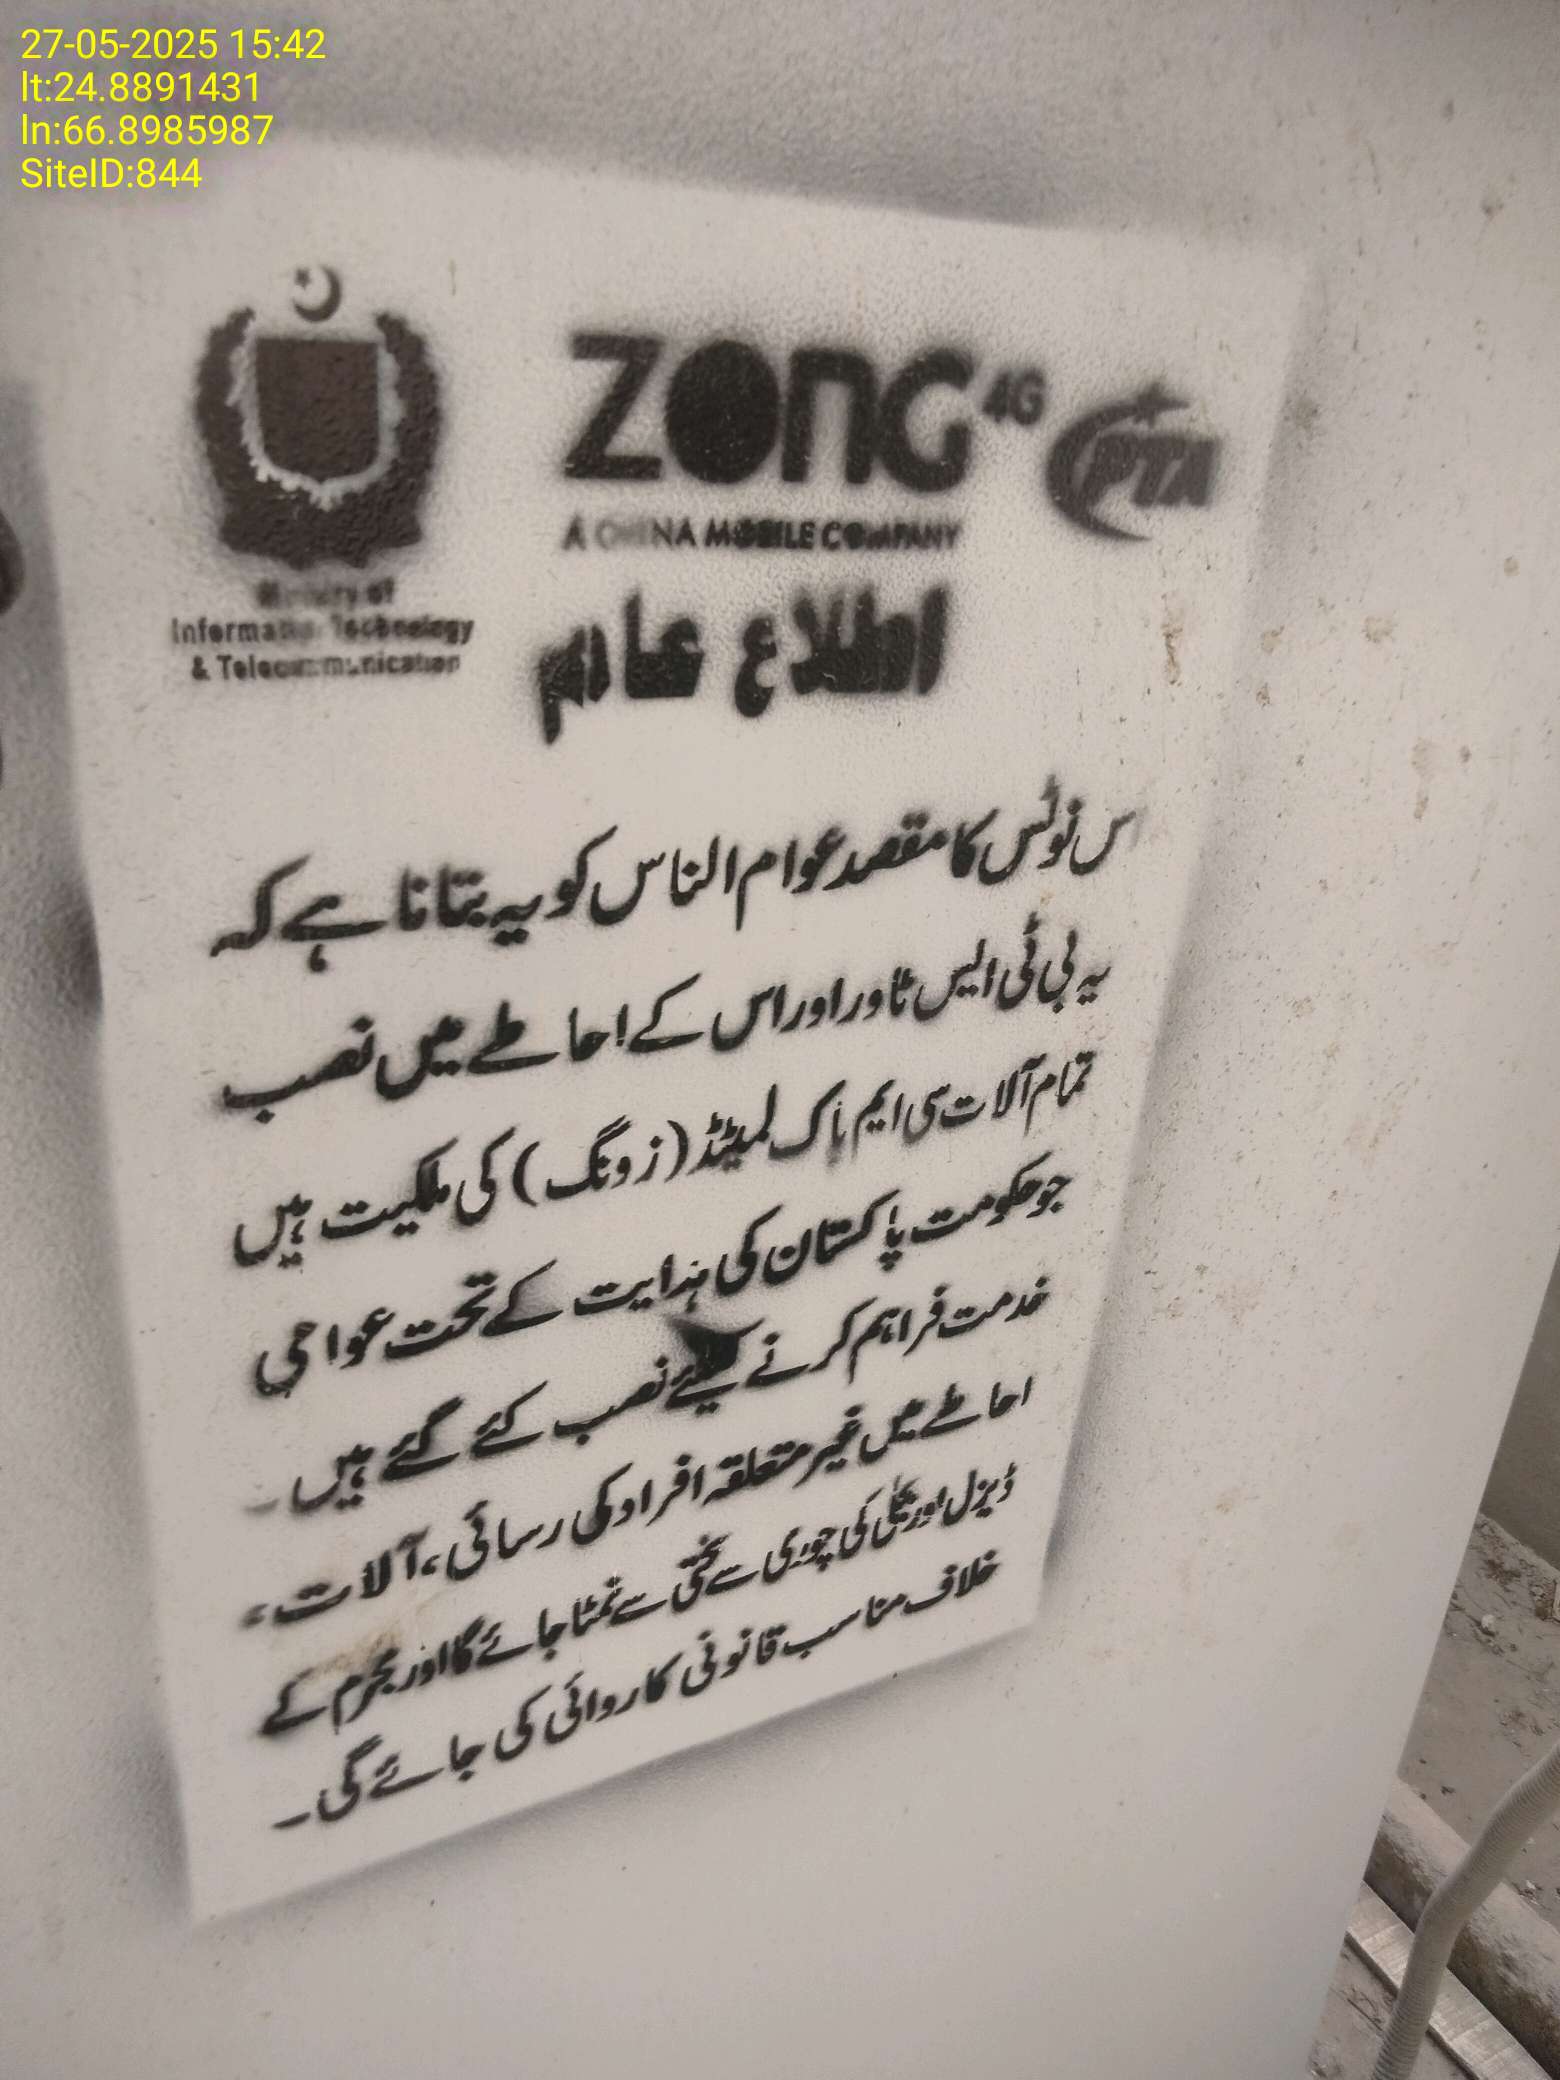 27-05-2025 15:42
lt:24.8891431
ln:66.8985987
SiteID:844
ZONG 4G
PTA
A CHINA MOBILE COMPANY
Ministry of
Information Technology
& Telecommunication
اطلاع عام
اس نوٹس کا مقصد عوام الناس کو یہ بتانا ہے کہ
یہ بی ٹی ایس ٹاور اور اس کے احاطے میں نصب
تمام آلات سی ایم پاک لمیٹڈ (زونگ) کی ملکیت ہیں
جو حکومت پاکستان کی ہدایت کے تحت عوامی
خدمت فراہم کرنے کیلئے نصب کئے گئے ہیں۔
احاطے میں غیر متعلقہ افراد کی رسائی، آلات،
ڈیزل اور بجلی کی چوری سے سختی سے نمٹا جائے گا اور مجرم کے
خلاف مناسب قانونی کاروائی کی جائے گی۔